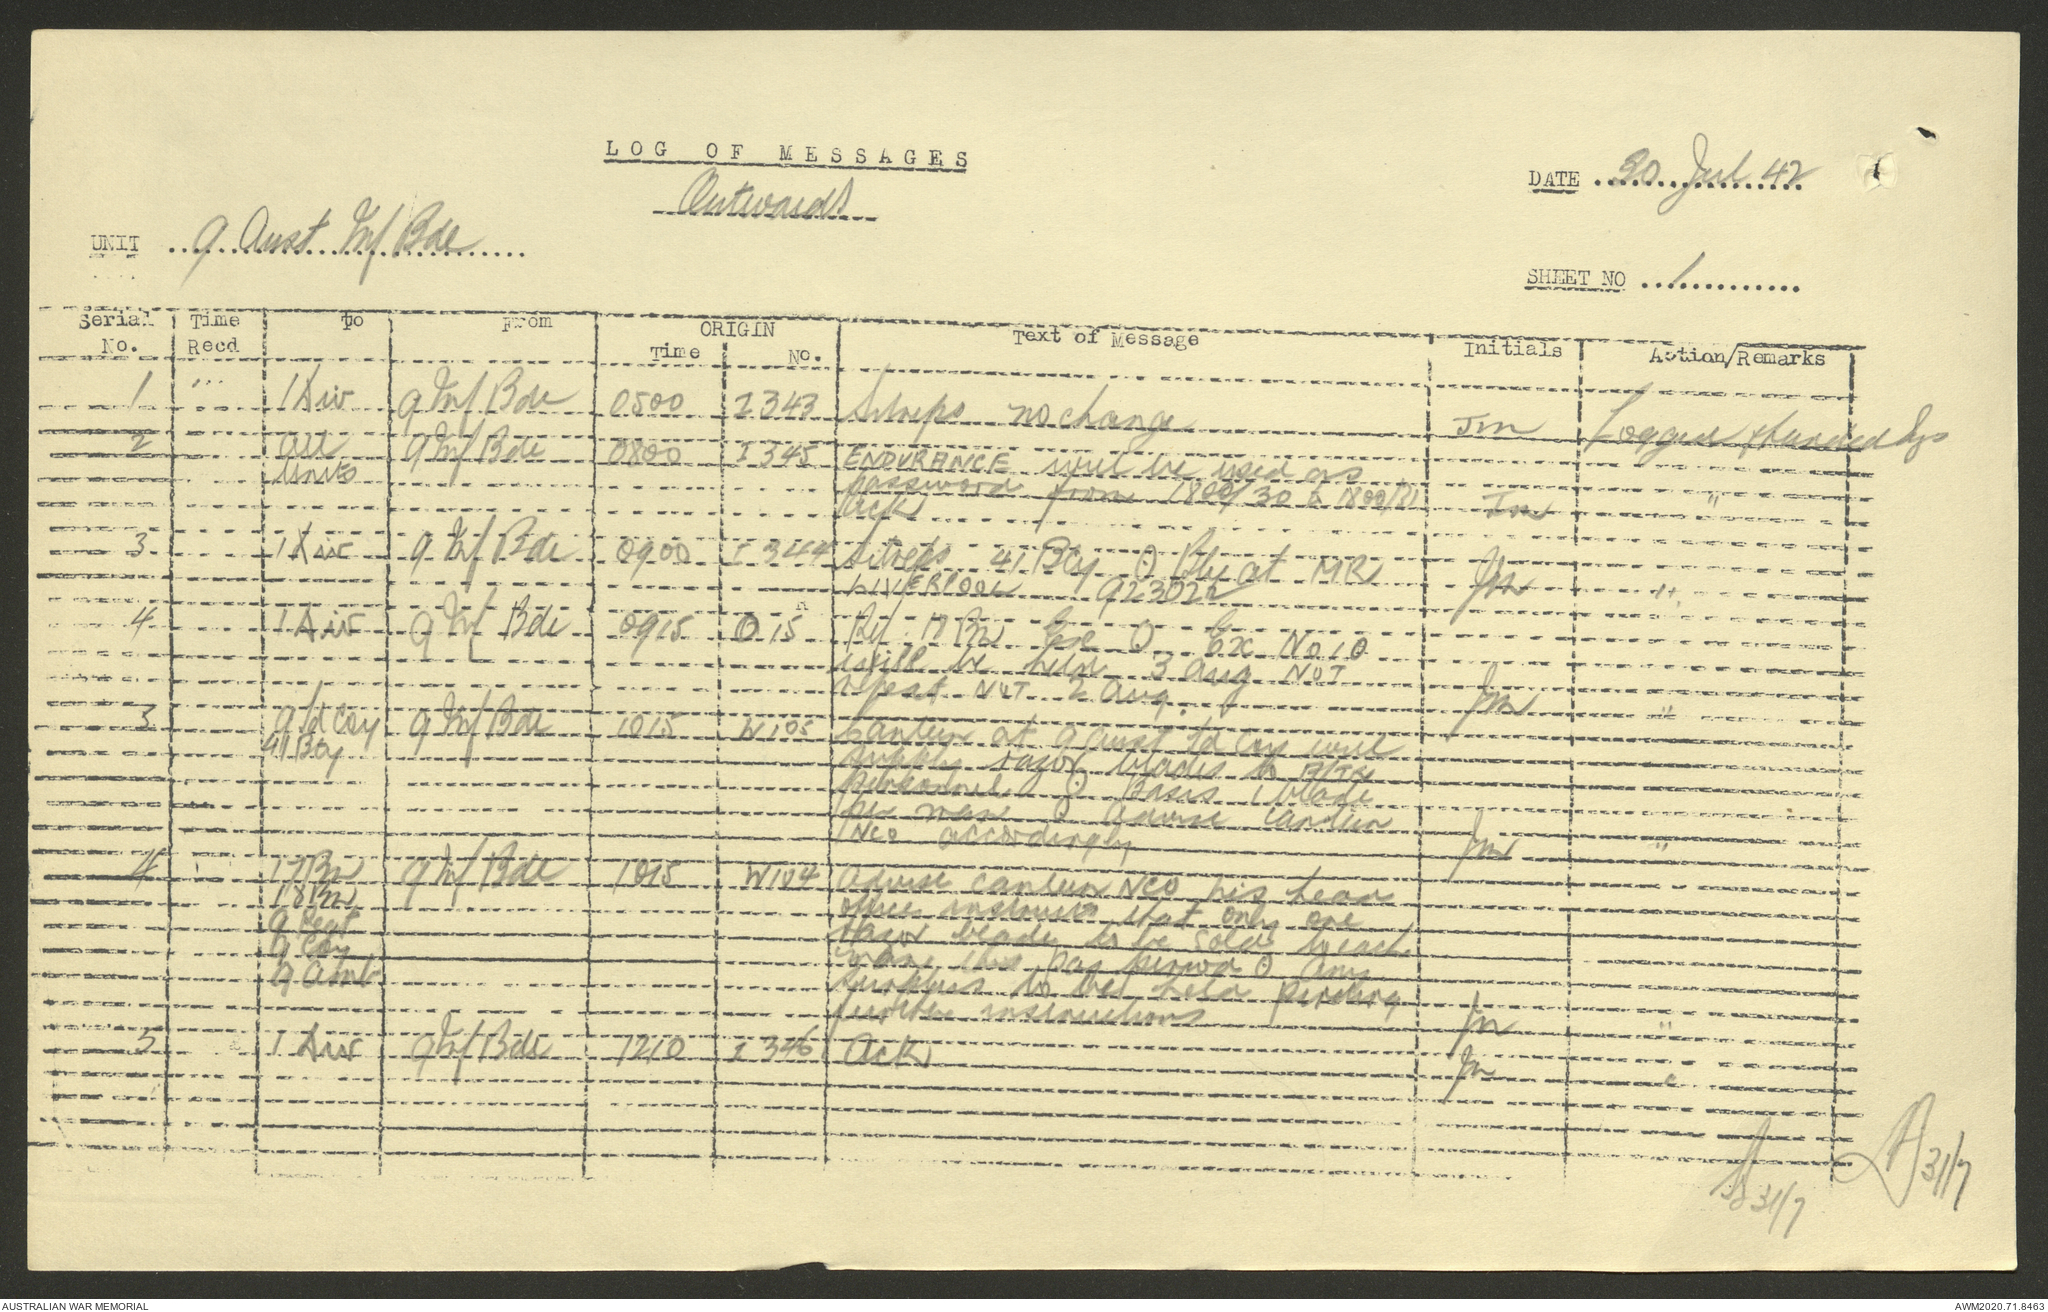 LOG OF MESSAGES
Outwards
DATE 30 Jul 42
UNIT 9 Aust Inf Bde
SHEET NO 1
Serial No. Time Recd to From ORIGIN Time No. Text of Message Initials Action/Remarks
1 ... 1 Div 9 Inf Bde 0500 I 343 Sitreps no change Jm Logged
2 All 9 Inf Bde 0800 I 345 ENDURANCE will be used as
Units password from 1800/30 to 1800/31
Ack Jm "
3 1 Div 9 Inf Bde 0900 I 344 Sitreps 41 Bty O Bty at MR
LIVERPOOL 923022 Jm "
4 1 Div 9 Inf Bde 0915 O 15 Ref 17 Bn Exe O Ex No 10
will be held 3 Aug NOT
repeat NOT 2 Aug. Jm "
3 9 Fd Coy 9 Inf Bde 1015 W105 Canteen at 9 Aust Fd Coy will
41 Bty supply razor blades to
personnel O Basis 1 blade
per man O Advise Canteen
NCO accordingly Jm "
4 17 Bn 9 Inf Bde 1015 W104 Advise canteen NCO his head
18 Bn office instructn that only one
9 razor blade to be sold to each
9 Coy man this pay period O Any
Amb surplus to be held pending
further instructions Jm "
5 1 Div 9 Inf Bde 1210 I 346 Ack Jm "
31/7
31/7
AUSTRALIAN WAR MEMORIAL
AWM2020.71.8463